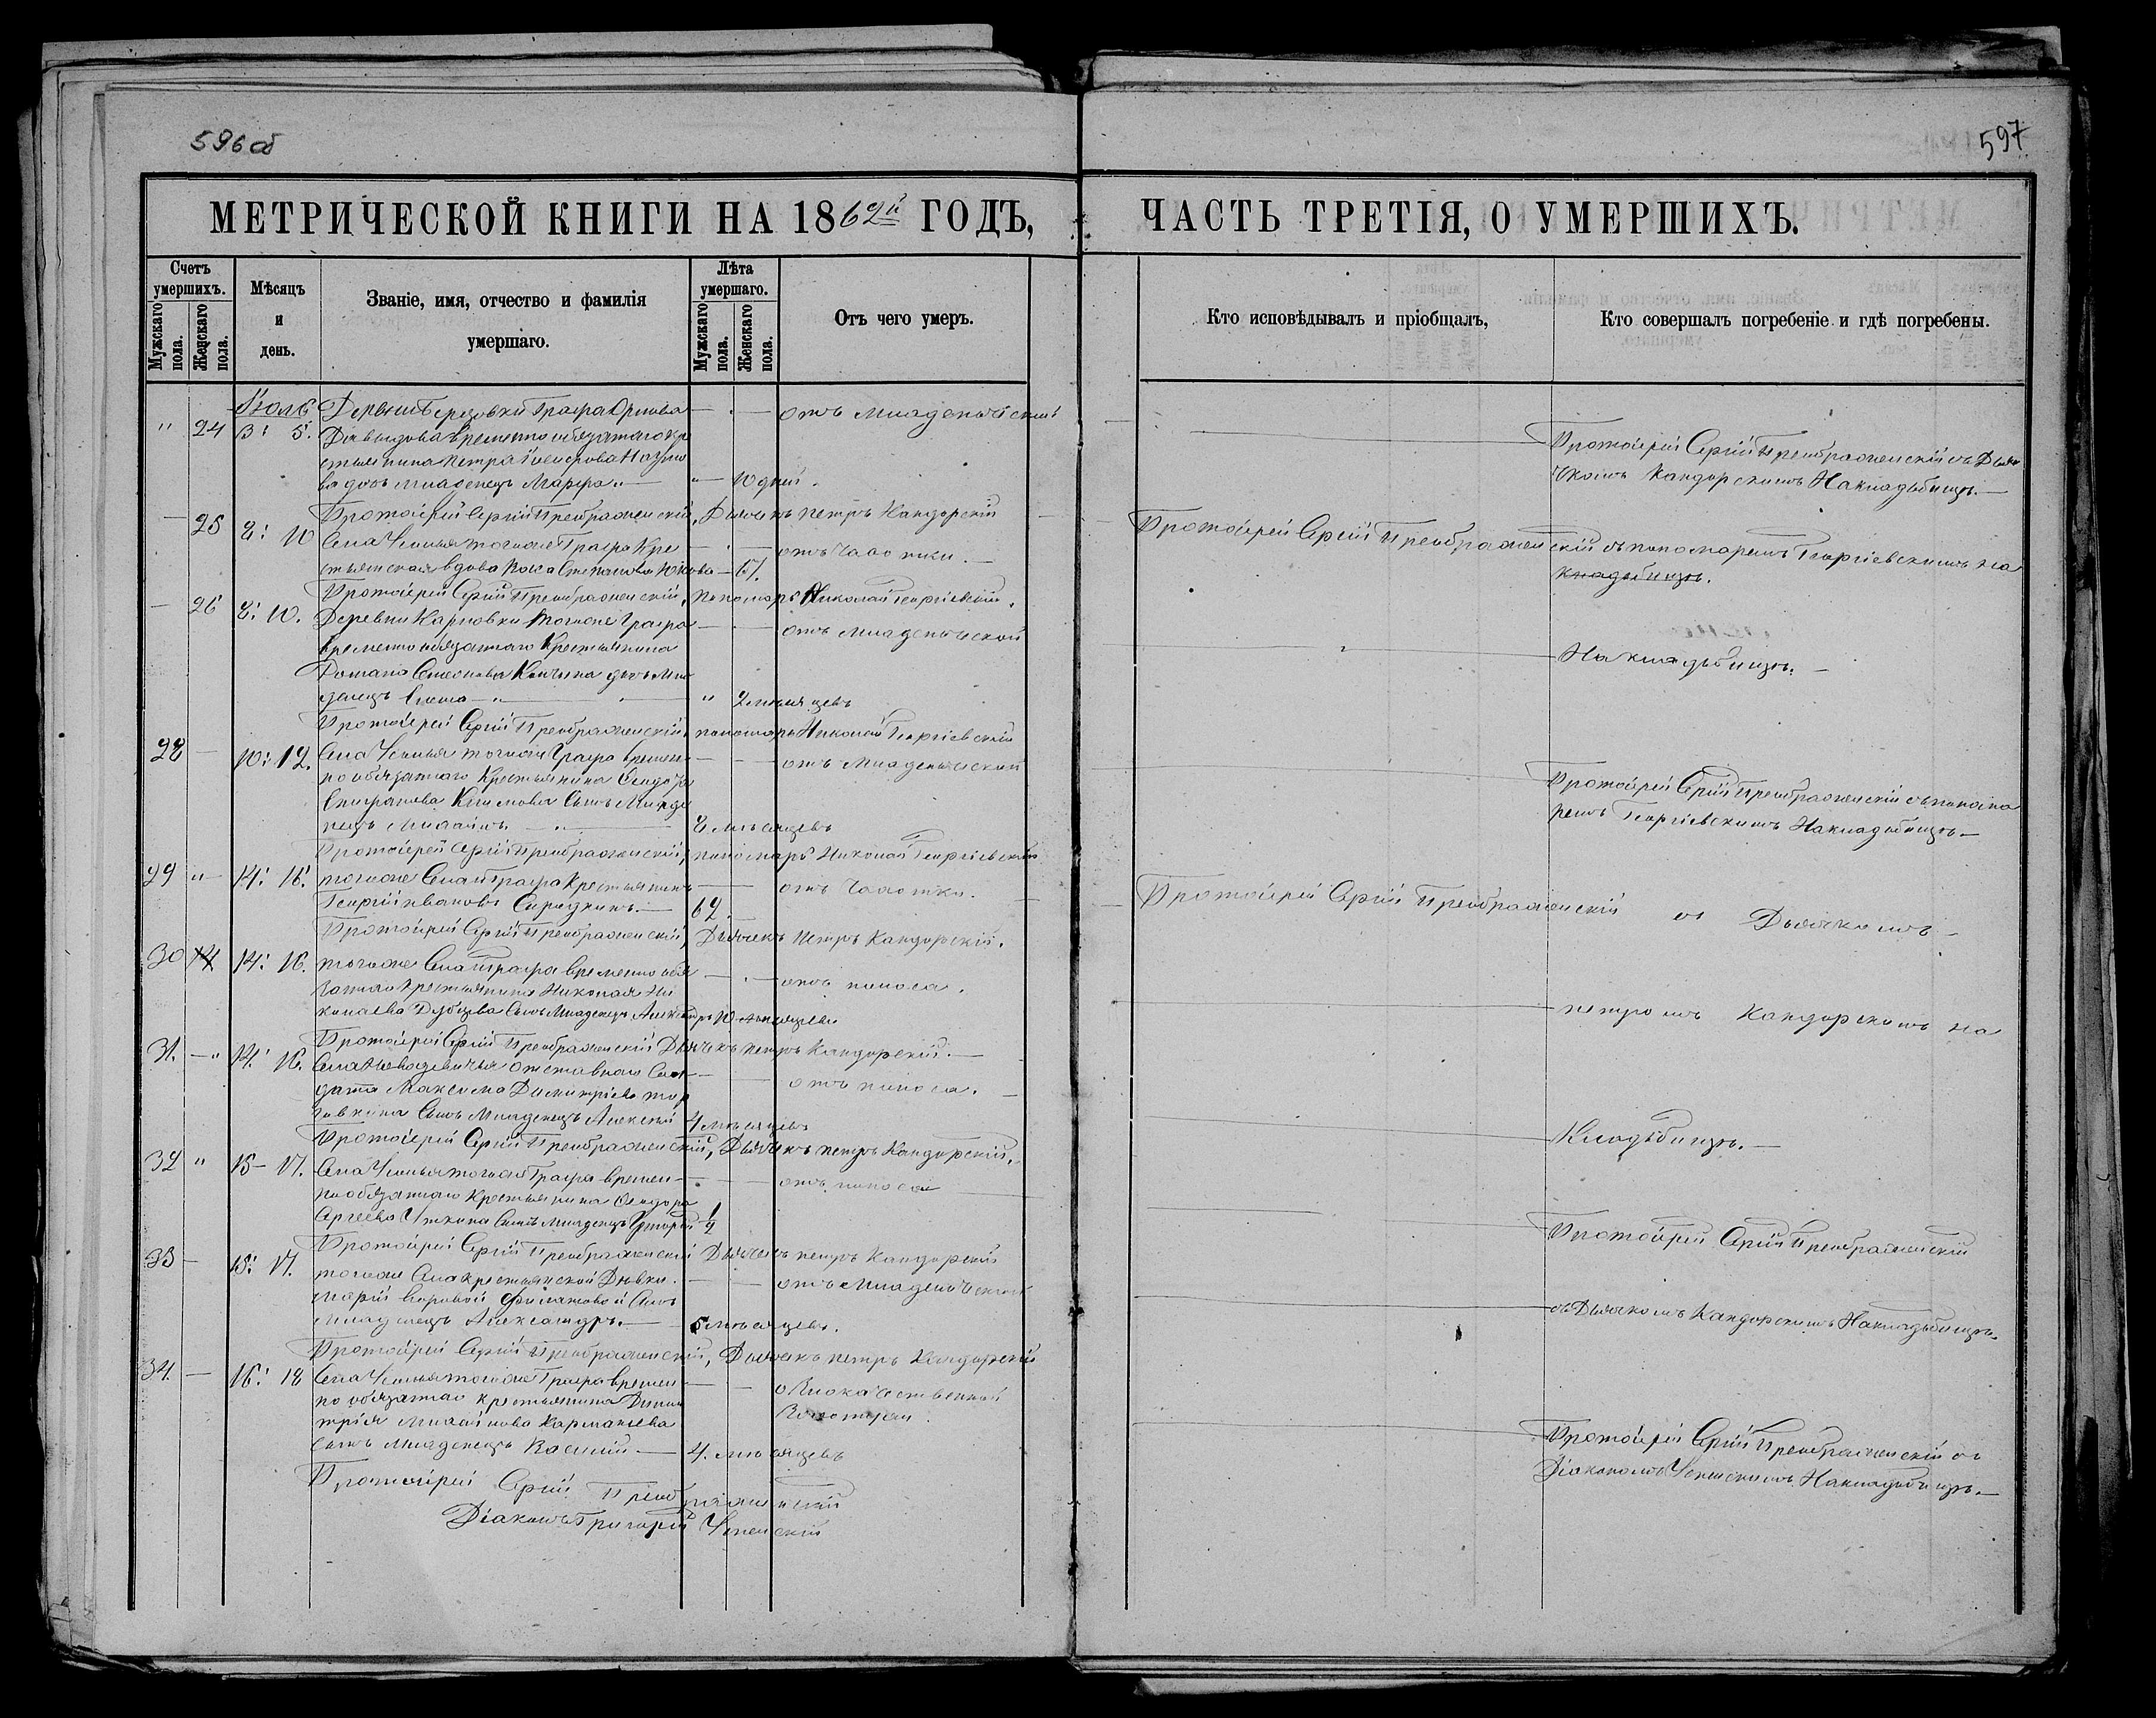 596об
597
МЕТРИЧЕСКОЙ КНИГИ НА 1862й ГОДЪ,
ЧАСТЬ ТРЕТІЯ, О УМЕРШИХЪ.
Счетъ умершихъ.
Мужскаго пола.
Женскаго пола.
Мѣсяцъ и день.
Званіе, имя, отчество и фамилія умершаго.
Лѣта умершаго.
Мужскаго пола.
Женскаго пола.
Отъ чего умеръ.
Кто исповѣдывалъ и пріобщалъ,
Кто совершалъ погребеніе и гдѣ погребены.
Іюль
" 24 3: 5. Деревни Березовки Графа Орлова отъ младенческой
Давыдова временно обязаннаго кре
стьянина Петра
ва дочь младенецъ Марфа " 10 дней.
Протоіерей Сергій Преображенскій съ Дья
чкомъ Кандорскимъ На кладбищѣ.
Протоіерей Сергій Преображенскій, Дьячекъ Петръ Кандорскій
— 25 8: 10 Села Усолья тогоже Графа Кре отъ чахотки.
стьянская вдова Степанова
Протоіерей Сергій Преображенскій съ пономаремъ Георгіевскимъ на
кладбищѣ.
Протоіерей Сергій Преображенскій, Пономарь Николай Георгіевскій.
— 26 8: 10. Деревни Карповки тогоже Графа отъ младенческой
временно обязаннаго Крестьянина
Романа дочь мла
денецъ " 2 мѣсяцевъ
На кладбищѣ.
Протоіерей Сергій Преображенскій, пономарь Николай Георгіевскій
28 — 10: 12. Села Усолья тогоже Графа времен отъ младенческой
но обязаннаго Крестьянина Феодора
Климова сынъ Младе
нецъ Михаилъ 8 мѣсяцевъ
Протоіерей Сергій Преображенскій съ понома
ремъ Георгіевскимъ На кладбищѣ.
Протоіерей Сергій Преображенскій, пономарь Николай Георгіевскій
29 " 14: 16. тогоже Села Графа Крестьянинъ отъ чахотки.
Георгій Ивановъ 62.
Протоіерей Сергій Преображенскій съ Дьячкомъ
Протоіерей Сергій Преображенскій, Дьячекъ Петръ Кандорскій.
30 14: 16. тогоже Села Графа временно обя отъ поноса.
заннаго крестьянина Николая Ни
колаева Дубцева сынъ Младенецъ Александръ 10 мѣсяцевъ
Петромъ Кандорскимъ на
Протоіерей Сергій Преображенскій Дьячекъ Петръ Кандорскій.
31. — " 14: 16. Села Новодевичья отставнаго Сол отъ поноса.
дата Максима Димитріева
сынъ Младенецъ Алексѣй 4 мѣсяцевъ
Кладбищѣ.
Протоіерей Сергій Преображенскій, Дьячекъ Петръ Кандорскій.
32 " 15 — 17. Села Усолья тогоже Графа времен отъ поноса
но обязаннаго Крестьянина Феодора
Сергеева Уткина сынъ младенецъ Григорій 1/2
Протоіерей Сергій Преображенскій
Протоіерей Сергій Преображенскій Дьячекъ Петръ Кандорскій
33 — 15: 17. тогоже Села крестьянской Дѣвки отъ Младенческой
Маріи Филатовой сынъ
Младенецъ Александръ. 5 мѣсяцевъ.
съ Дьячкомъ Кандорскимъ На кладбищѣ.
Протоіерей Сергій Преображенскій, Дьячекъ Петръ Кандорскій
34. — 16: 18 Села Усолья тогоже Графа времен
но обязаннаго крестьянина Дими
трія Михайлова Карманаева
сынъ младенецъ Василій 4. мѣсяцевъ
Протоіерей Сергій Преображенскій съ
Діакономъ Успенскимъ На кладбищѣ.
Протоіерей Сергій Преображенскій
Діаконъ Григорій Успенскій